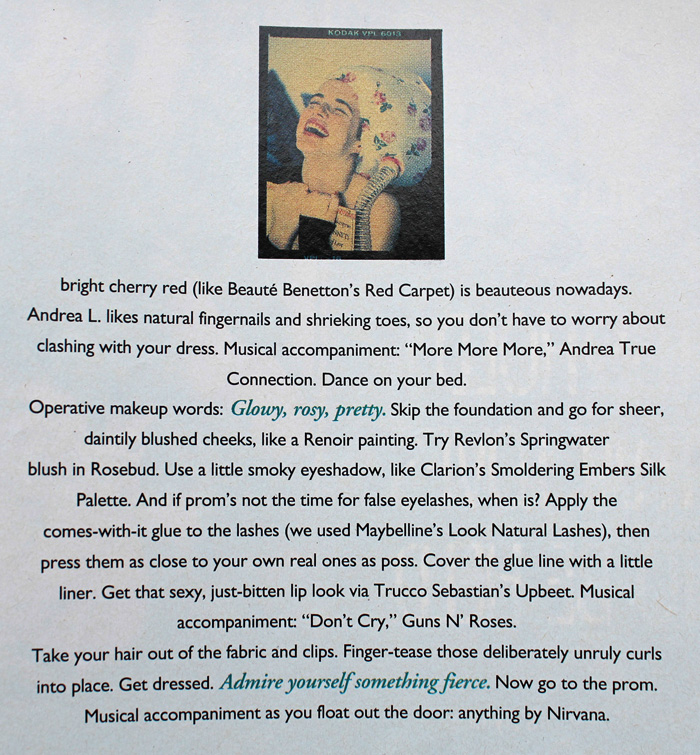 KODAK VPL 6013
bright cherry red (like Beauté Benetton's Red Carpet) is beauteous nowadays.
Andrea L. likes natural fingernails and shrieking toes, so you don't have to worry about
clashing with your dress. Musical accompaniment: “More More More,” Andrea True
Connection. Dance on your bed.
Operative makeup words: Glowy, rosy, pretty. Skip the foundation and go for sheer,
daintily blushed cheeks, like a Renoir painting. Try Revlon's Springwater
blush in Rosebud. Use a little smoky eyeshadow, like Clarion's Smoldering Embers Silk
Palette. And if prom's not the time for false eyelashes, when is? Apply the
comes-with-it glue to the lashes (we used Maybelline's Look Natural Lashes), then
press them as close to your own real ones as poss. Cover the glue line with a little
liner. Get that sexy, just-bitten lip look via Trucco Sebastian's Upbeet. Musical
accompaniment: “Don't Cry,” Guns N' Roses.
Take your hair out of the fabric and clips. Finger-tease those deliberately unruly curls
into place. Get dressed. Admire yourself something fierce. Now go to the prom.
Musical accompaniment as you float out the door: anything by Nirvana.